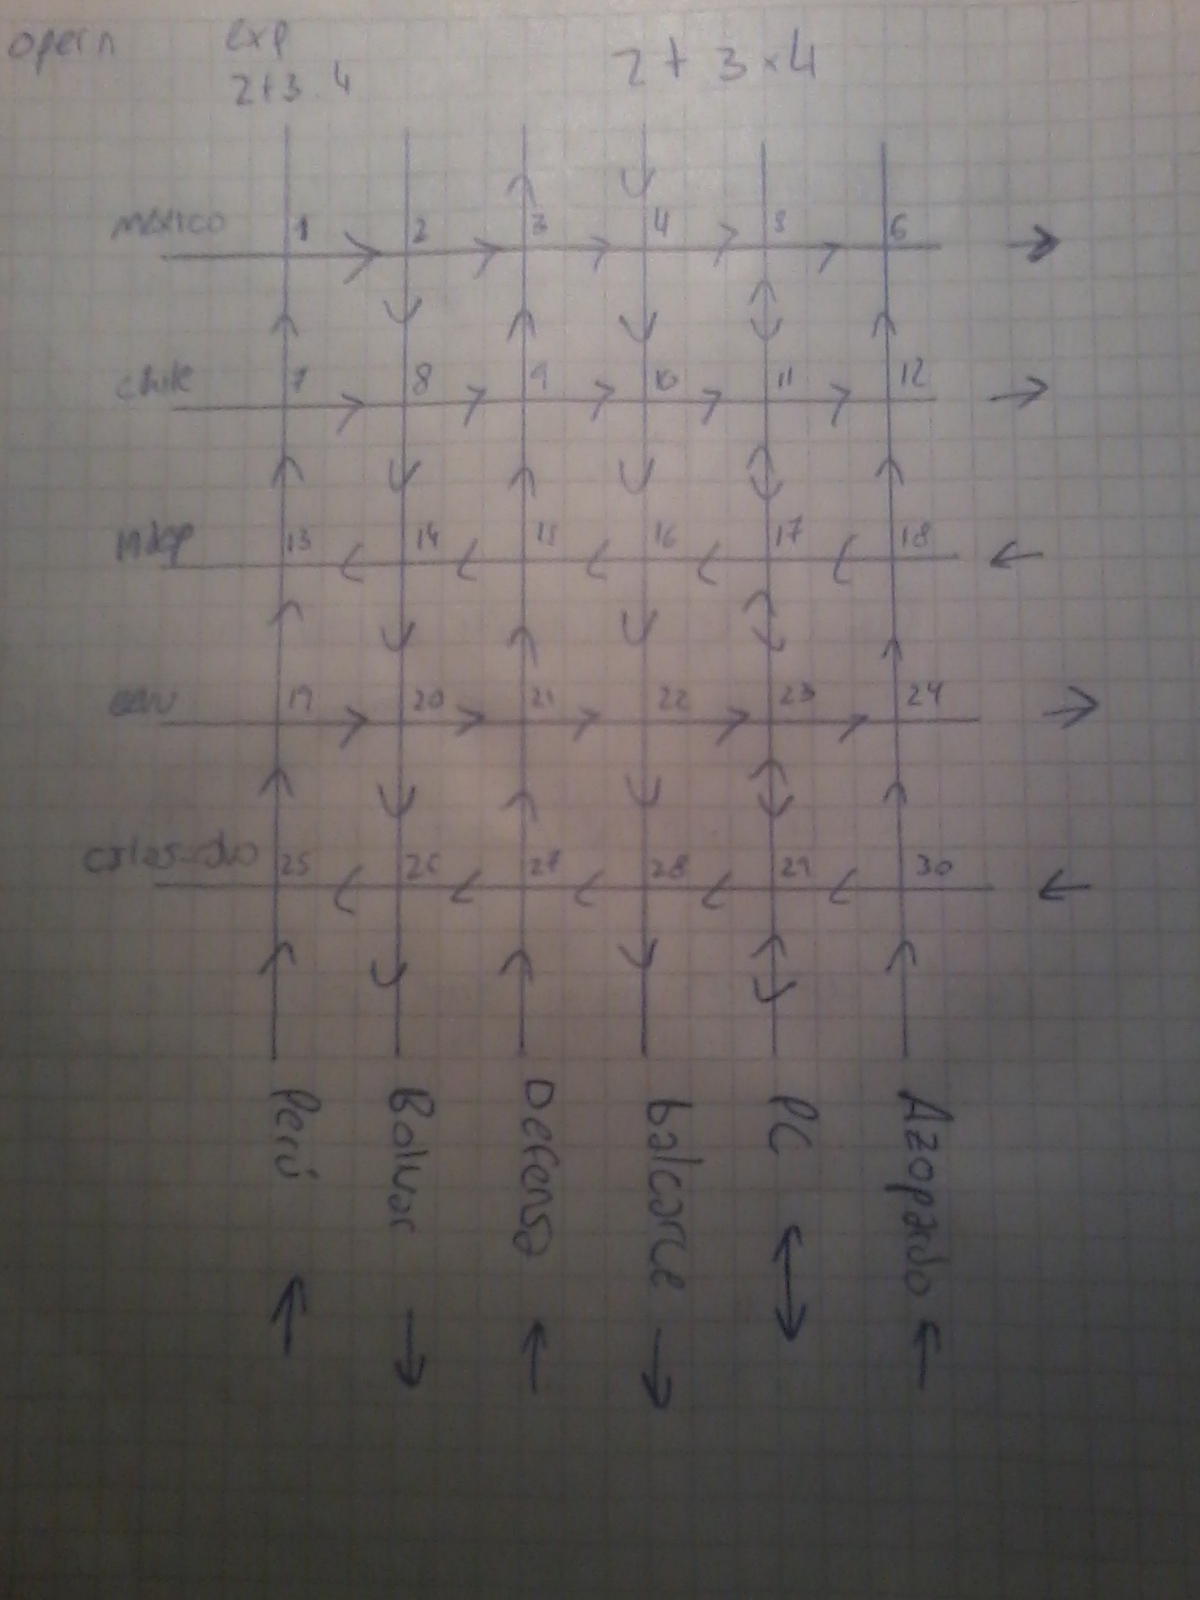 opern exp 2 + 3 × 4
2+3.4
mexico 1 2 3 4 5 6
chile 7 8 9 10 11 12
Indep 13 14 15 16 17 18
eeuu 19 20 21 22 23 24
25 26 27 28 29 30
Perú
Bolivar
Defensa
balcarce
PC
Azopardo